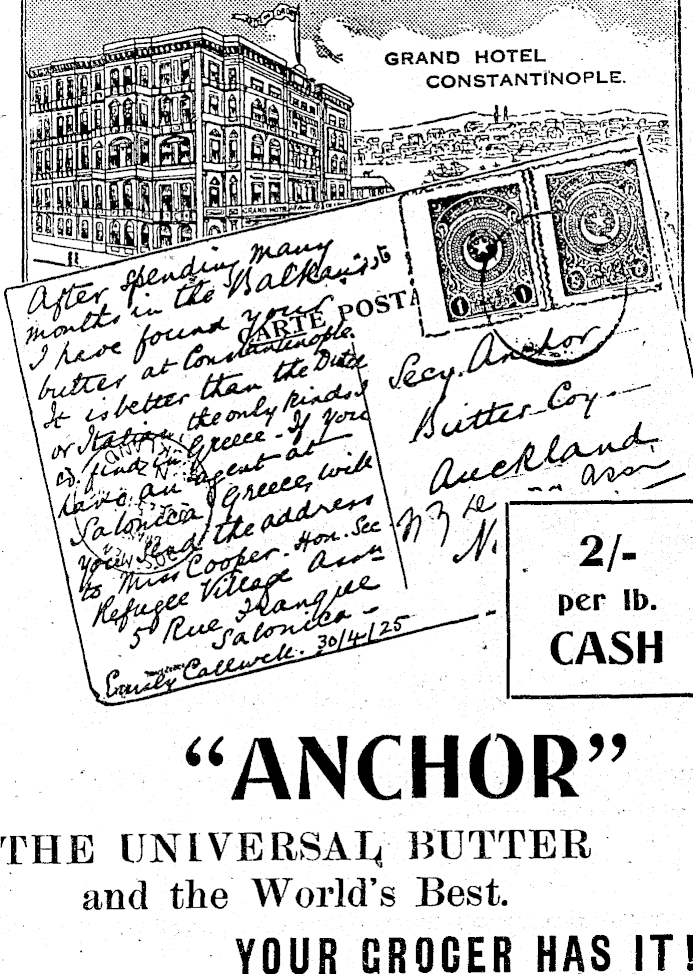 GRAND HOTEL
CONSTANTINOPLE.
GRAND HOTEL
After spending many
months in the Balkans
I have found your
butter at Constantinople.
It is better than the Dutch
or Italian the only kinds I
find in Greece - If you
have an agent at
Salonica Greece, will
you send the address
to Miss Cooper. Hon. Sec.
Refugee Village Assn
5 Rue Franque
Salonica -
Emily Callwell. 30/4/25
CARTE POSTA
1 1
Secy. Anchor
Butter Coy.
Auckland
N.
2/-
per lb.
CASH
“ANCHOR”
THE UNIVERSAL BUTTER
and the World's Best.
YOUR GROCER HAS IT!